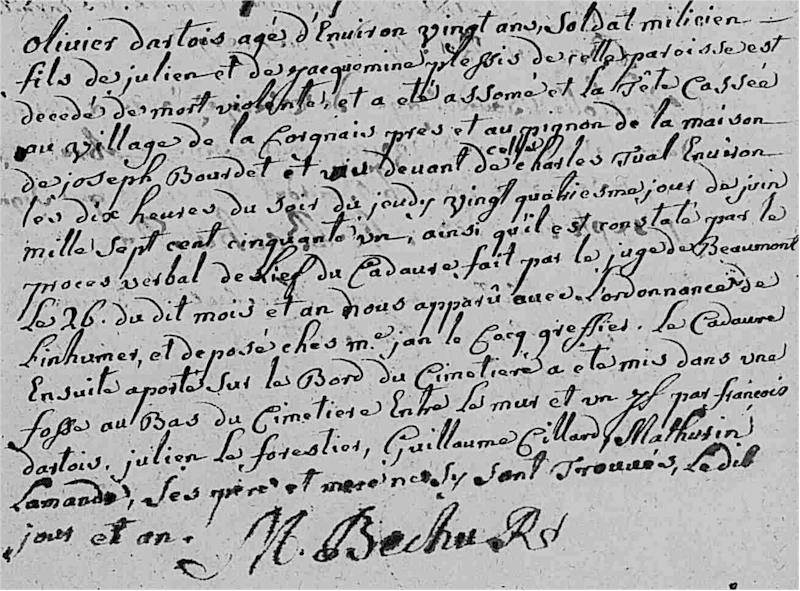 olivier dartois agé d'Environ vingt ans, Soldat milicien
fils de julien et de jacquemine plessis de cette paroisse est
decedé de mort violente, et a eté assomé et la Tête Cassée
au village de la Corgnais pres et au pignon de la maison
de joseph Bourdet et vis devant de celle charles Tual Environ
les dix heures du soir du jeudy vingt quatriesme jour de juin
mille Sept cent cinquante un, ainsi qu'il est constaté par le
proces verbal de Lief du Cadavre fait par le juge de Beaumont
Le 26. du dit mois et an nous apparû avec L'ordonnance de
Linhumer, et deposé ches me. jan le Cocq greffier. Le Cadavre
Ensuite aporté Sur le Bord du Cimetiere a eté mis dans une
fosse au Bas du Cimetiere Entre Le mur et un yf par françois
dartois, julien Le forestier, Guillaume Cillard, Mathurin
Lamandé, Ses père et mere ne s'y Sont Trouvés, Le dit
jour et an. M. Bechu Rr